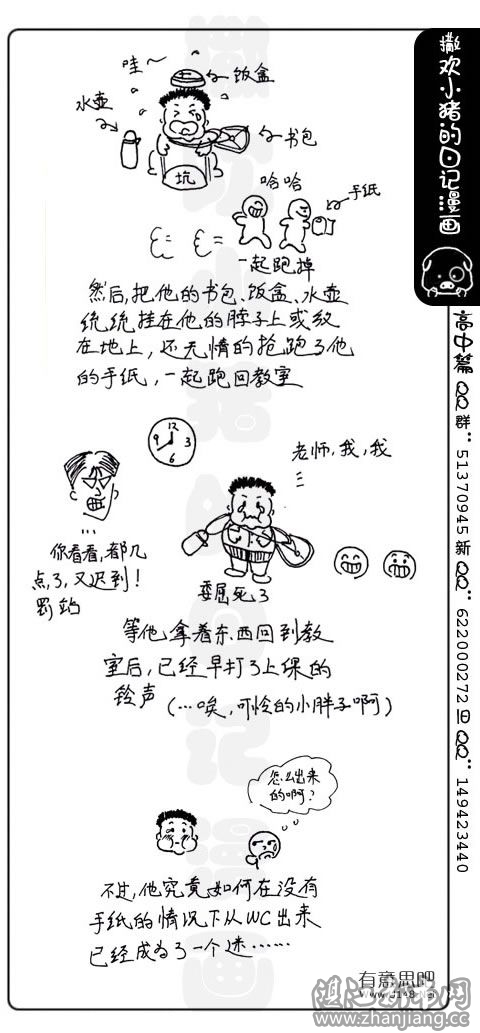 撒欢小猪的日记漫画
高中篇 QQ群:51370945 新QQ:622000272 旧QQ:149423440
哇~
饭盒
水壶
书包
坑
哈哈
手纸
一起跑掉
然后,把他的书包、饭盒、水壶
统统挂在他的脖子上或放
在地上,还无情的抢跑了他
的手纸,一起跑回教室
12
9
3
6
老师,我,我
...
你看看,都几
点了,又迟到!
罚站
委屈死了
等他拿着东西回到教
室后,已经早打了上课的
铃声
(…唉,可怜的小胖子啊)
怎么出来
的啊?
不过,他究竟如何在没有
手纸的情况下从WC出来
已经成为了一个迷……
有意思吧
www.zhanjiang.cc